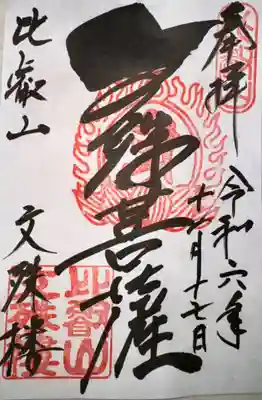 奉拝
令和六年
十一月十七日
文殊菩薩
比叡山
文殊楼
比叡山
文殊楼